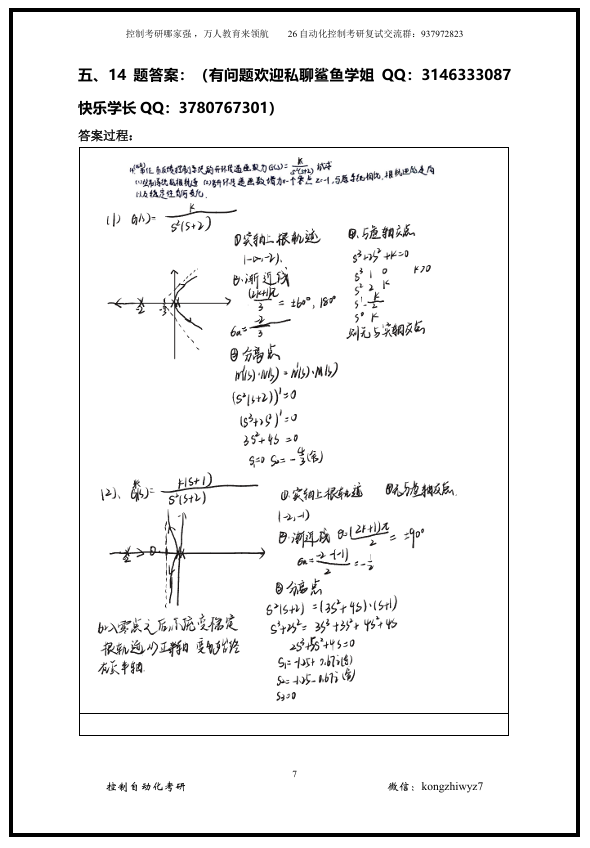 控制考研哪家强，万人教育来领航 26自动化控制考研复试交流群：937972823
五、14 题答案：（有问题欢迎私聊鲨鱼学姐 QQ：3146333087
快乐学长QQ：3780767301）
答案过程：
(1) G(s)= K / s²(s+2)
①实轴上根轨迹
(-∞,-2).
②.渐近线
(2k+1)π / 3 = ±60°, 180°
σa= -2 / 3
③分离点
(s²(s+2))'=0
(s³+2s²)'=0
3s²+4s=0
s₁=0 s₂=-4/3(舍)
④.与虚轴交点
s³+2s²+K=0
s³ 1 0 K>0
s² 2 K
s¹ -K/2
s⁰ K
则无与实轴交点
(2)、G(s)= K(s+1) / s²(s+2)
①.实轴上根轨迹
(-2,-1)
②.渐近线 (2k+1)π / 2 = ±90°
σa= -2-(-1) / 2 = -1/2
③分离点
s²(s+2)=(3s²+4s)·(s+1)
s³+2s²=3s³+3s²+4s²+4s
2s³+5s²+4s=0
s₁=-1.25+0.67i(舍)
s₂=-1.25-0.67i(舍)
s₃=0
④无与虚轴交点.
加入零点之后,系统变稳定
7
控制自动化考研 微信：kongzhiwyz7